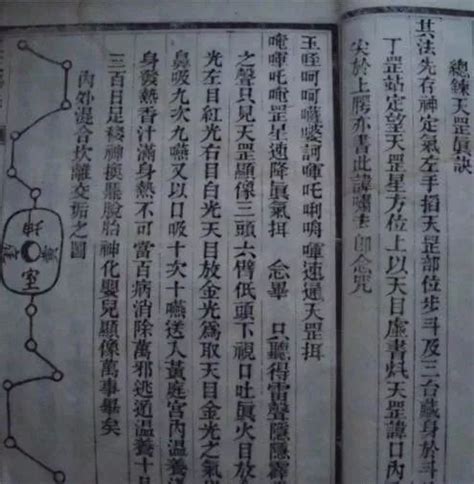 總練天罡眞訣
其法先存神定氣左手掐天罡部位步斗及三台藏身於斗
丁罡站定望天罡星方位上以天目虛書天罡諱口內
尖於上腭亦書此諱嘯卽念咒
玉呵呵訶吒唎速天罡
唵吒唵罡星速降眞氣 念畢 只聽得雷聲隱隱霹
之聲只見天罡顯像三頭六臂低頭下視口吐眞火目放
光左目紅光右目白光天目放金光爲取天目金光之氣
鼻吸九次九嚥又以口吸十次十嚥送入黃庭宮內溫養
身發熱香汗滿身熱不可當百病消除萬邪逃遁溫養十
三百日足後神換鼎脫胎神化嬰兒顯像萬事畢矣
內外混合坎離交姤之圖
室